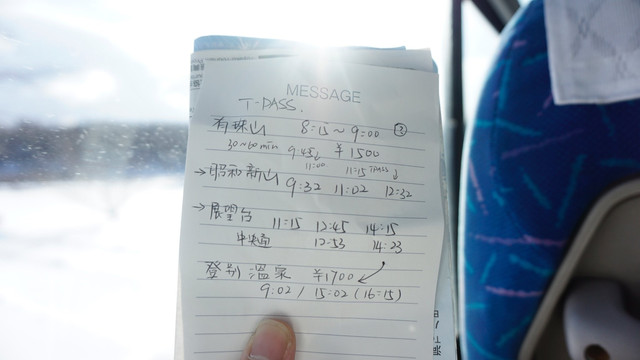 MESSAGE
T-PASS.
有珠山 8:15~9:00 ③
30~60min 9:45 ¥1500
11:00 11:15 TPASS↓
→昭和新山 9:32 11:02 12:32
→展望台 11:15 12:45 14:15
中央通 12:53 14:23
登別溫泉 ¥1700
9:02 / 15:02 (16:15)